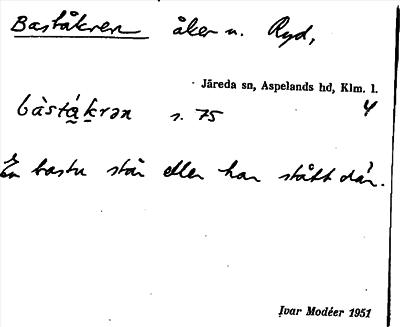 Baståkren åker n. Ryd,
Järeda sn, Aspelands hd, Klm. l.
bàstá̰k̠rən s. 75 4
En bastu står eller har stått där.
Ivar Modéer 1951